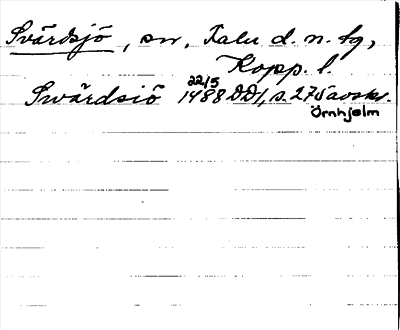 Svärdsjö, sn, Falu d. n. tg,
Kopp. l.
Swärdsiö 1488 22/5 DD1, s. 275 avskr.
Örnhjelm